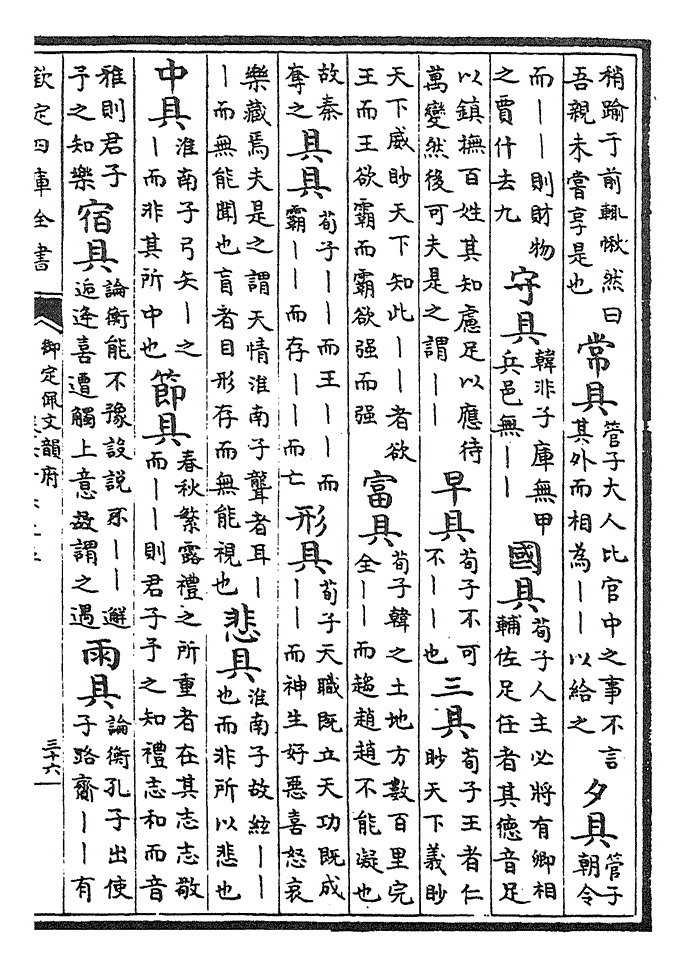 稍踰于前輒愀然曰吾親未嘗享是也 常具 管子大人比官中之事不言其外而相為丨丨以給之 夕具 管子朝令
而丨丨則財物之賈什去九 守具 韓非子庫無甲兵邑無丨丨 國具 荀子人主必將有卿相輔佐足任者其德音足
以鎮撫百姓其知慮足以應待萬變然後可夫是之謂丨丨 早具 荀子不可不丨丨也 三具 荀子王者仁眇天下義眇
天下威眇天下知此丨丨者欲王而王欲霸而霸欲强而强 富具 荀子韓之土地方數百里完全丨丨而趨趙趙不能凝也
故秦奪之 具具 荀子丨丨而王丨丨而霸丨丨而存丨丨而亡 形具 荀子天職既立天功既成丨丨而神生好惡喜怒哀
樂藏焉夫是之謂天情淮南子聾者耳丨丨而無能聞也盲者目形存而無能視也 悲具 淮南子故絃丨丨也而非所以悲也
中具 淮南子弓矢丨之丨而非其所中也 節具 春秋繁露禮之所重者在其志志敬而丨丨則君子予之知禮志和而音
雅則君子予之知樂 宿具 論衡能不豫設說不丨丨邂逅逢喜遭觸上意故謂之遇 雨具 論衡孔子出使子路齎丨丨有
欽定四庫全書 御定佩文韻府 三十六